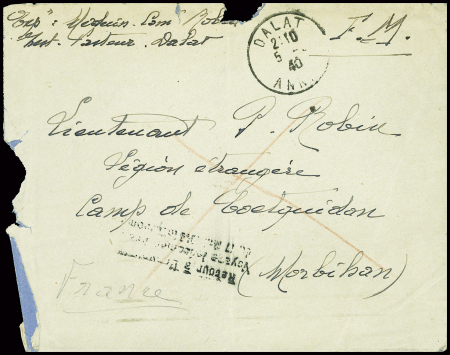 Exp: Médecin Com Robin
Inst. Pasteur. Dalat
F.M.
DALAT
2.10
5
40
ANN
Lieutenant P. Robin
Légion étrangère
Camp de Coetquidan
(Morbihan)
France
Retour à